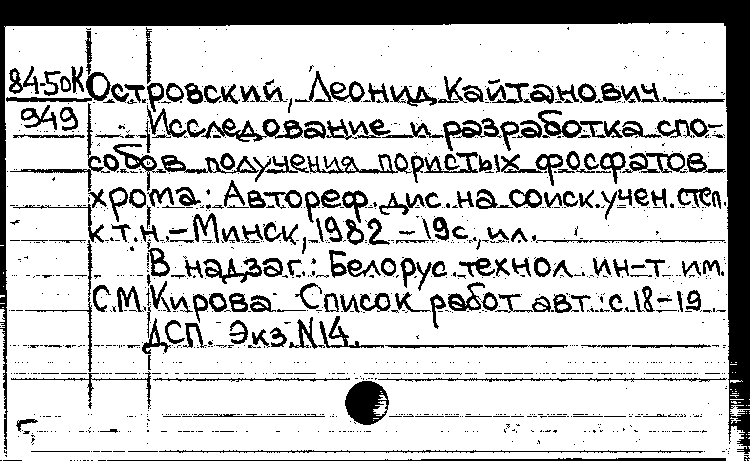 84-5ОК Островский, Леонид Кайтанович.
949 Исследование и разработка спо-
собов получения пористых фосфатов
хрома: Автореф. дис. на соиск. учен. степ.
к.т.н. - Минск, 1982 - 19с., ил.
В надзаг.: Белорус. технол. ин-т им.
С.М. Кирова. Список работ авт.: с. 18-19
ДСП. Экз. N14.